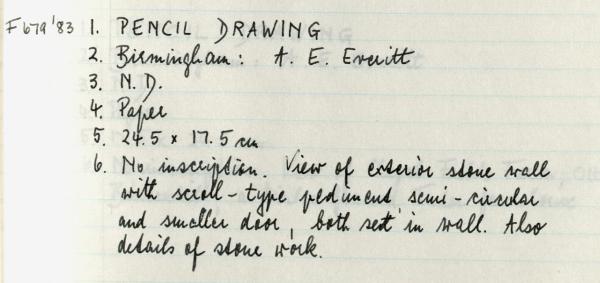 F679'83 1. PENCIL DRAWING
2. Birmingham: A. E. Everitt
3. N.D.
4. Paper
5. 24.5 x 17.5 cm
6. No inscription. View of exterior stone wall
with scroll-type pediment, semi-circular
and smaller door, both set in wall. Also
details of stone work.